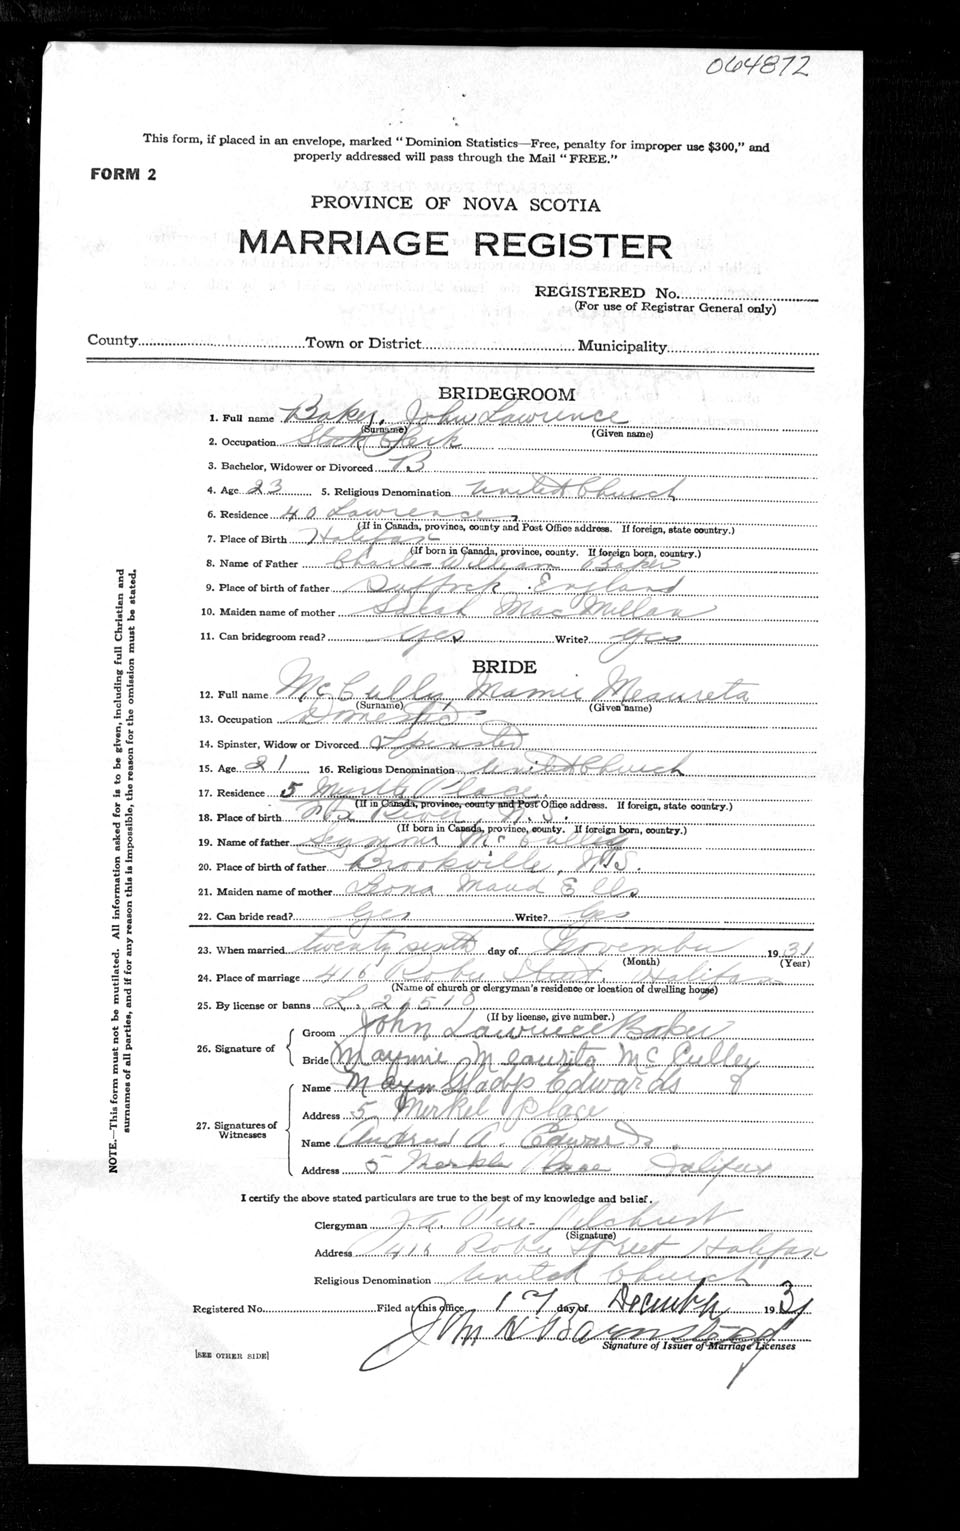 064872
This form, if placed in an envelope, marked "Dominion Statistics—Free, penalty for improper use $300," and
properly addressed will pass through the Mail "FREE."
FORM 2
PROVINCE OF NOVA SCOTIA
MARRIAGE REGISTER
REGISTERED No.
(For use of Registrar General only)
County Town or District Municipality
BRIDEGROOM
1. Full name Baker, John Lawrence
(Surname) (Given name)
2. Occupation Clerk
3. Bachelor, Widower or Divorced B
4. Age 23 5. Religious Denomination United Church
6. Residence 40 Lawrence
(If in Canada, province, county and Post Office address. If foreign, state country.)
7. Place of Birth Halifax
(If born in Canada, province, county. If foreign born, country.)
8. Name of Father Charles William Baker
9. Place of birth of father Suffolk England
10. Maiden name of mother Sarah MacMillan
11. Can bridegroom read? Yes Write? Yes
BRIDE
12. Full name McCulley Mamie Meaureta
(Surname) (Given name)
13. Occupation Domestic
14. Spinster, Widow or Divorced Spinster
15. Age 21 16. Religious Denomination United Church
17. Residence 5 Place
(If in Canada, province, county and Post Office address. If foreign, state country.)
18. Place of birth River N.S.
(If born in Canada, province, county. If foreign born, country.)
19. Name of father Seymour McCulley
20. Place of birth of father Brookville, N.S.
21. Maiden name of mother Maud Ells
22. Can bride read? Yes Write? Yes
23. When married twenty sixth day of November 1931
(Month) (Year)
24. Place of marriage 416 Robie Street, Halifax
(Name of church or clergyman's residence or location of dwelling house)
25. By license or banns L. 26518
(If by license, give number.)
26. Signature of
Groom John Lawrence Baker
Bride Maymie Meaurita McCulley
27. Signatures of Witnesses
Name Gladys Edwards
Address 5 Merkel Place
Name Andrew A. Edwards.
Address 5 Merkle Place Halifax
I certify the above stated particulars are true to the best of my knowledge and belief.
Clergyman Gilchrist
(Signature)
Address 416 Robie Street Halifax
Religious Denomination United Church
Registered No. Filed at this office 17 day of December 1931
John H Barnstead
Signature of Issuer of Marriage Licenses
[SEE OTHER SIDE]
NOTE.—This form must not be mutilated. All information asked for is to be given, including full Christian and
surnames of all parties, and if for any reason this is impossible, the reason for the omission must be stated.